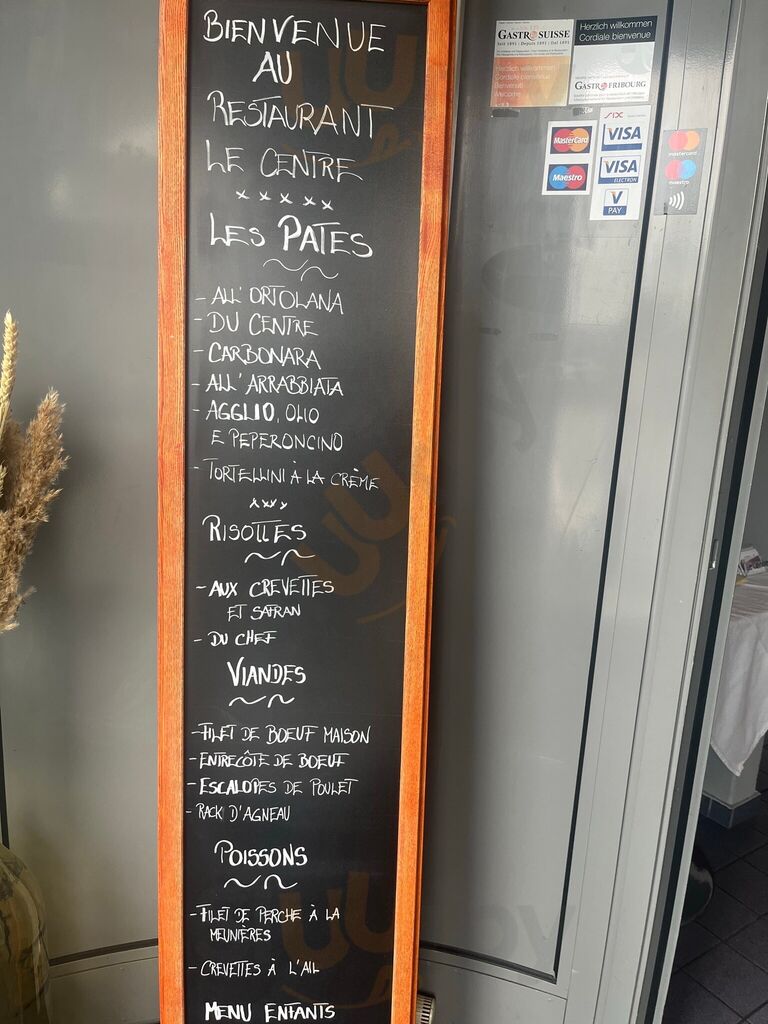 BIENVENUE
AU
RESTAURANT
LE CENTRE
LES PATES
- ALL' ORTOLANA
- DU CENTRE
- CARBONARA
- ALL'ARRABBIATA
- AGGLIO, OLIO
E PEPERONCINO
- TORTELLINI À LA CRÈME
RISOTTES
- AUX CREVETTES
ET SAFRAN
- DU CHEF
VIANDES
- FILET DE BOEUF MAISON
- ENTRECÔTE DE BOEUF
- ESCALOPES DE POULET
- RACK D'AGNEAU
POISSONS
- FILET DE PERCHE À LA
MEUNIÈRES
- CREVETTES À L'AIL
MENU ENFANTS
GASTROSUISSE
Seit 1891 | Depuis 1891 | Dal 1891
Herzlich willkommen
Cordiale bienvenue
Benvenuti
Welcome
Herzlich willkommen
Cordiale bienvenue
GASTROFRIBOURG
SIX
MasterCard
Maestro
VISA
VISA
ELECTRON
V
PAY
mastercard
maestro